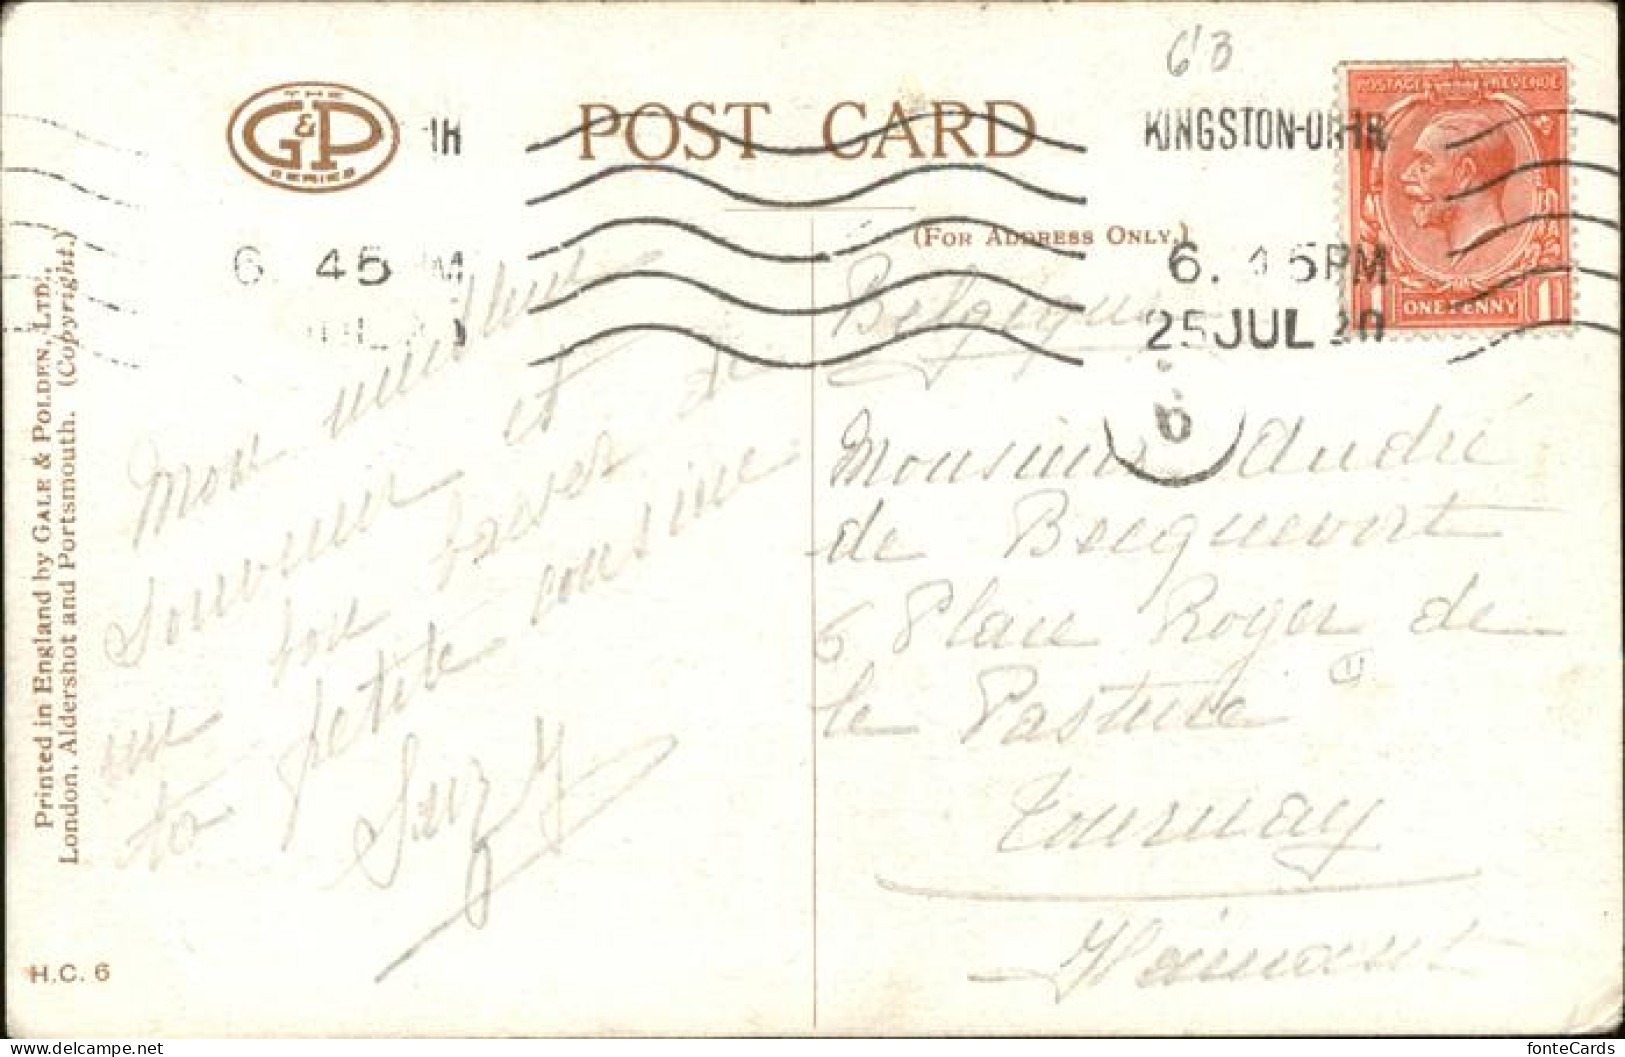 6/3
THE
G&P
SERIES
POST CARD
KINGSTON-ON-TH
6. 45 PM
25 JUL 20
POSTAGE REVENUE
1 ONE PENNY 1
(FOR ADDRESS ONLY.)
6. 45 PM
6
Mon meilleur
souvenir et
un bon baiser de
ta petite cousine
Suzy
Belgique
Monsieur André
de Becquevort
6 Place Roger de
le Pasture
Tournay
Hainaut
Printed in England by GALE & POLDEN, LTD.,
London, Aldershot and Portsmouth. (Copyright.)
H.C. 6
fonteCards